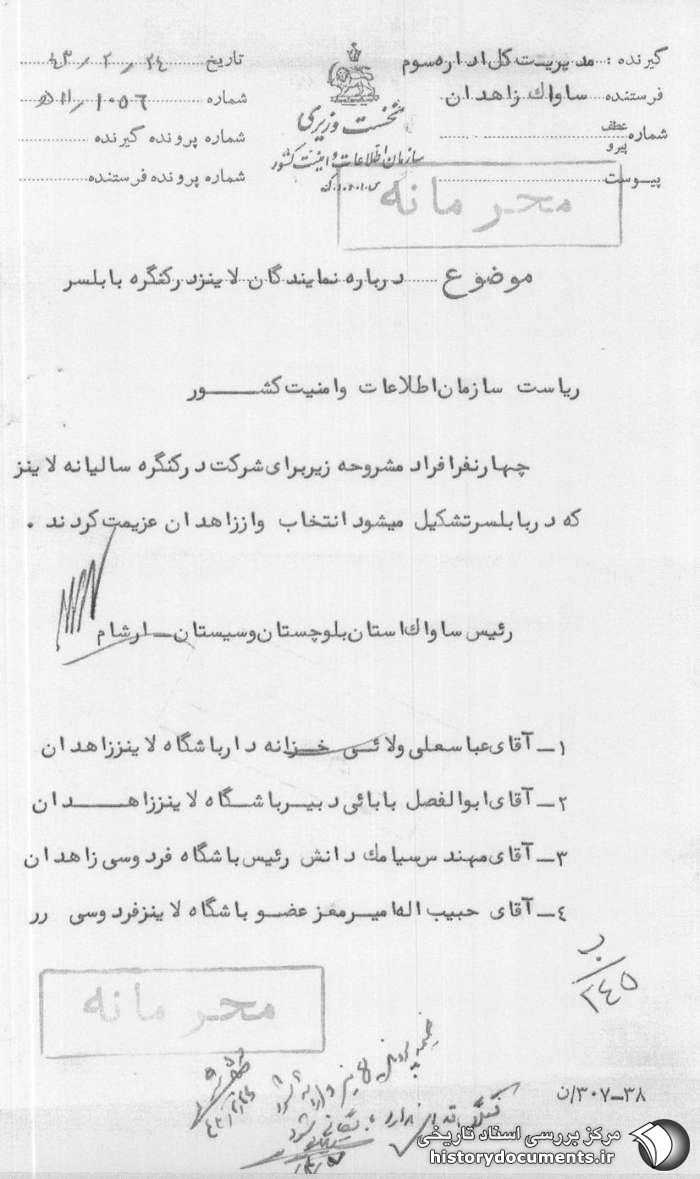 گیرنده : مدیریت کل اداره سوم
فرستنده ساواک زاهدان
شماره عطف پیرو
پیوست
نخست وزیری
سازمان اطلاعات و امنیت کشور
س.ا.و.ا.ک
تاریخ ۴۳/۲/۲۴
شماره ۱۰۵۶/
شماره پرونده گیرنده
شماره پرونده فرستنده
محرمانه
موضوع درباره نمایندگان لاینز در کنگره بابلسر
ریاست سازمان اطلاعات و امنیت کشور
چهار نفر افراد مشروحه زیر برای شرکت در کنگره سالیانه لاینز
که در بابلسر تشکیل میشود انتخاب و از زاهدان عزیمت کردند .
رئیس ساواک استان بلوچستان و سیستان ـ ارشام
۱ـ آقای عباسعلی ولائی خزانه دار باشگاه لاینز زاهدان
۲ـ آقای ابوالفصل بابائی دبیر باشگاه لاینز زاهدان
۳ـ آقای مهندس سیامک دانش رئیس باشگاه فردوسی زاهدان
٤ـ آقای حبیب اله امیرمعز عضو باشگاه لاینز فردوسی رر
۳٤۵
محرمانه
۳۸ـ۳۰۷/ن
مرکز بررسی اسناد تاریخی
historydocuments.ir